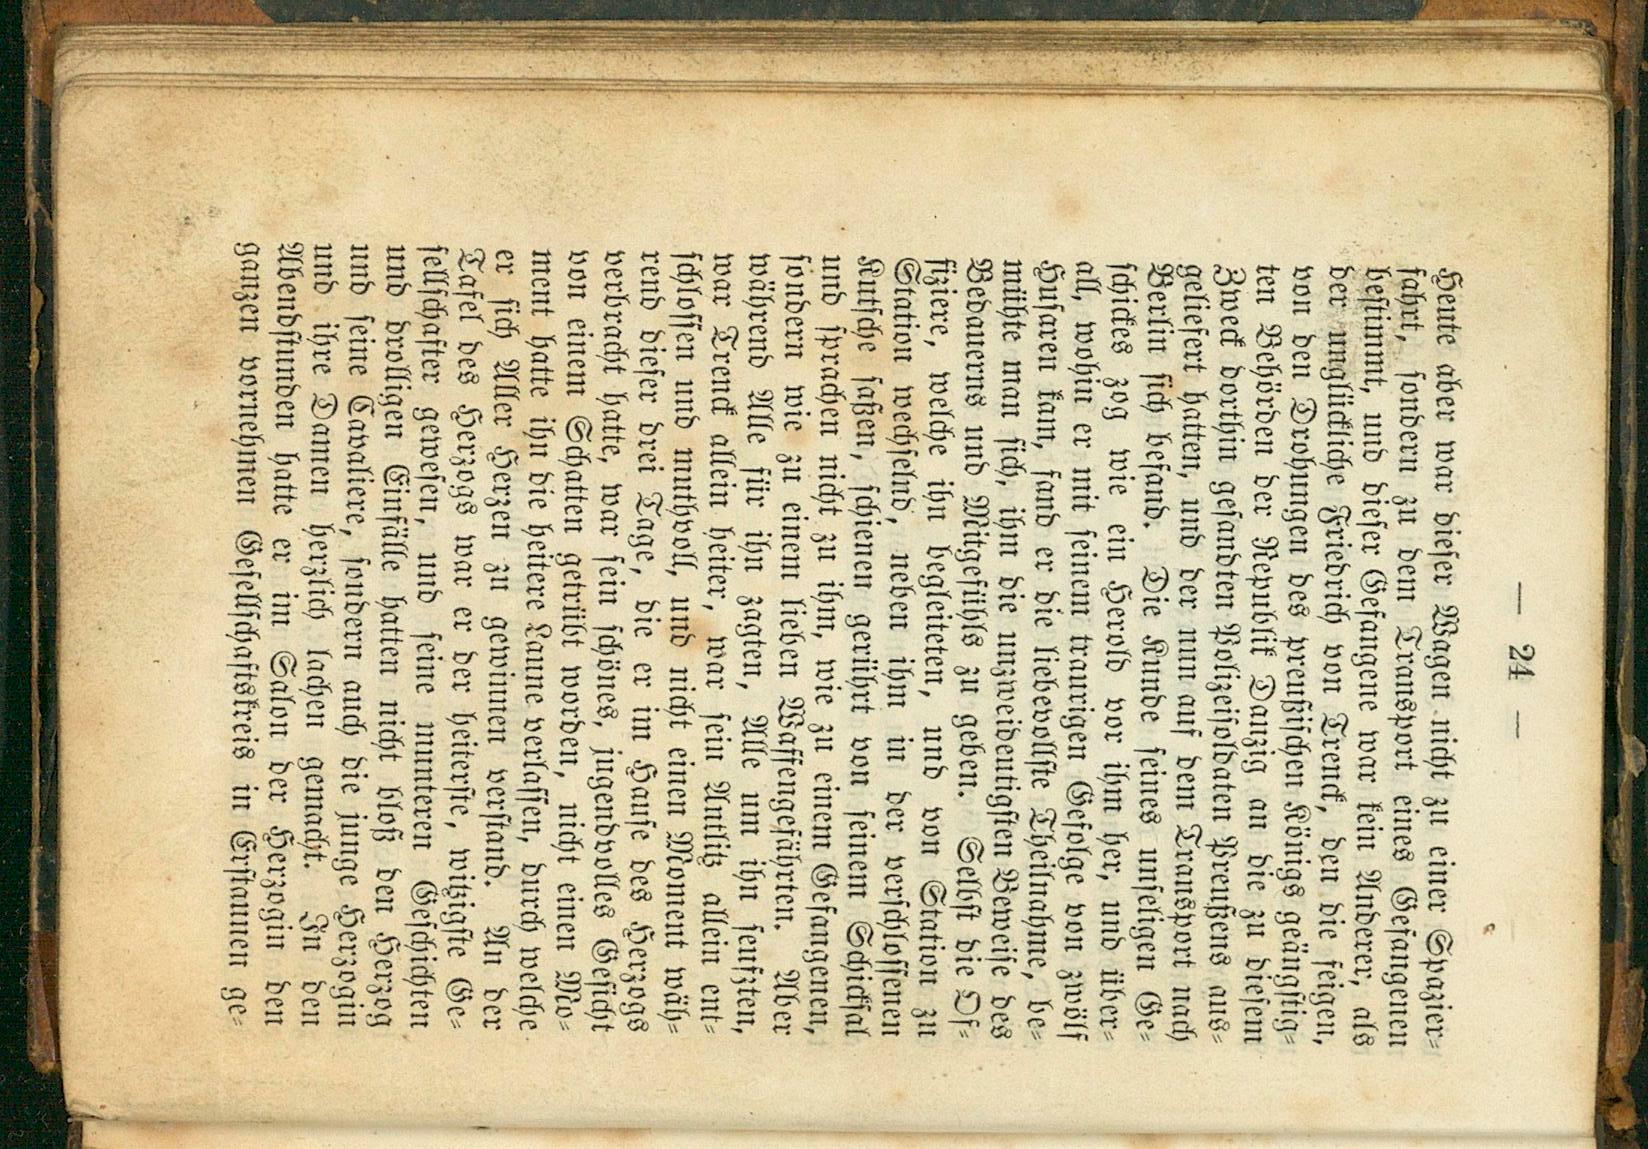 — 24 —
Heute aber war dieser Wagen nicht zu einer Spazier-
fahrt, sondern zu dem Transport eines Gefangenen
bestimmt, und dieser Gefangene war kein Anderer, als
der unglückliche Friedrich von Trenck, den die feigen,
von den Drohungen des preußischen Königs geängstig-
ten Behörden der Republik Danzig an die zu diesem
Zweck dorthin gesandten Polizeisoldaten Preußens aus-
geliefert hatten, und der nun auf dem Transport nach
Berlin sich befand. Die Kunde seines unseligen Ge-
schickes zog wie ein Herold vor ihm her, und über-
all, wohin er mit seinem traurigen Gefolge von zwölf
Husaren kam, fand er die liebevollste Theilnahme, be-
mühte man sich, ihm die unzweideutigsten Beweise des
Bedauerns und Mitgefühls zu geben. Selbst die Of-
fiziere, welche ihn begleiteten, und von Station zu
Station wechselnd, neben ihm in der verschlossenen
Kutsche saßen, schienen gerührt von seinem Schicksal
und sprachen nicht zu ihm, wie zu einem Gefangenen,
sondern wie zu einem lieben Waffengefährten. Aber
während Alle für ihn zagten, Alle um ihn seufzten,
war Trenck allein heiter, war sein Antlitz allein ent-
schlossen und muthvoll, und nicht einen Moment wäh-
rend dieser drei Tage, die er im Hause des Herzogs
verbracht hatte, war sein schönes, jugendvolles Gesicht
von einem Schatten getrübt worden, nicht einen Mo-
ment hatte ihn die heitere Laune verlassen, durch welche
er sich Aller Herzen zu gewinnen verstand. An der
Tafel des Herzogs war er der heiterste, witzigste Ge-
sellschafter gewesen, und seine munteren Geschichten
und drolligen Einfälle hatten nicht bloß den Herzog
und seine Cavaliere, sondern auch die junge Herzogin
und ihre Damen herzlich lachen gemacht. In den
Abendstunden hatte er im Salon der Herzogin den
ganzen vornehmen Gesellschaftskreis in Erstaunen ge-